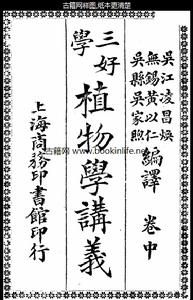 古籍网样图,纸本更清楚
吳江凌昌煥
無錫黃以仁
吳縣吳家煦
編譯
卷中
三好學
植物學講義
上海商務印書館印行
古籍网 www.bookinlife.net